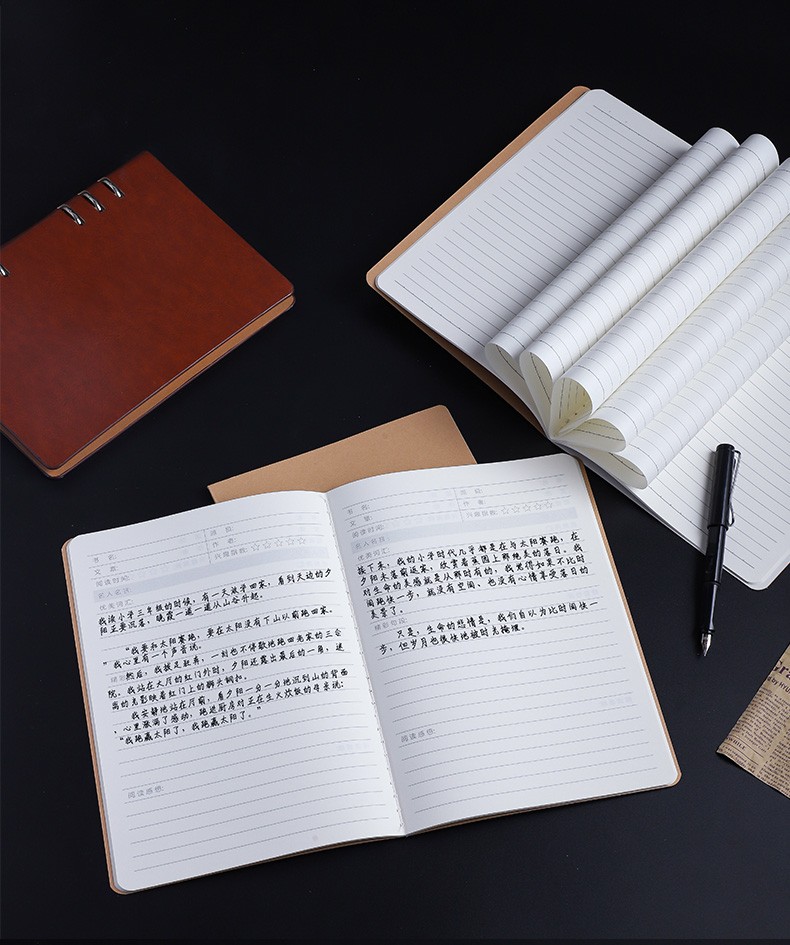 书 名: 班 级:
文 章: 作 者:
阅读时间: 兴趣指数:☆☆☆☆☆
名人名言:
优美词汇:
我读小学三年级的时候，有一天放学回家，看到天边的夕
阳正要沉落，晚霞一道一道从山谷升起。
“我要和太阳赛跑，要在太阳没有下山以前跑回家，
”我心里有一个声音说。
然后，我拔足狂奔，一刻也不停歇地跑回老家的三合
院。我站在大厅的红门外时，夕阳还露出最后的一角，透
出的光影映着红门上的狮头铜扣。
我安静地站在厅前，看夕阳一分一分地沉到山的背面
，心里涨满了感动，跑进厨房对正在生火炊饭的母亲说：
“我跑赢太阳了，我跑赢太阳了。”
阅读感悟:
书 名: 班 级:
文 章: 作 者:
阅读时间: 兴趣指数:☆☆☆☆☆
名人名言:
优美词汇:
接下来，我的小学时代几乎都是在与太阳赛跑，在
夕阳未落前返家，欣赏着蕉园上那绝美的落日，我
对生命的美感就是从那时有的，我觉得如果不比时
间跑快一步，就没有空间、也没有心情享受落日的
美景了。
精彩句段:
只是，生命的悲情是，我们自以为比时间快一
步，但岁月也很快地被时光掩埋。
阅读感悟: